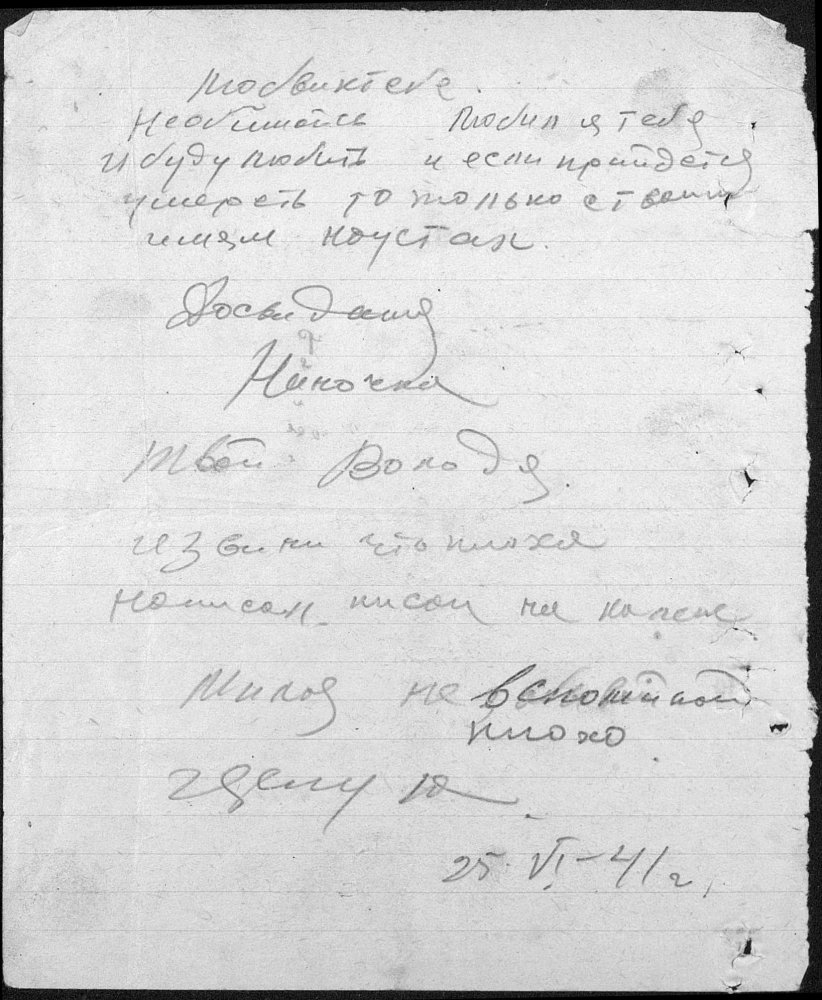 любви к тебе.
Не обижайся Любил я тебя
и буду любить и если прийдется
умереть то только с твоим
имям на устах.
Досвидания
Ниночка
Твой Володя.
извени что плоха
написал. писал на колене
Милая не вспоминай
плохо
целую
25. VI – 41 г.